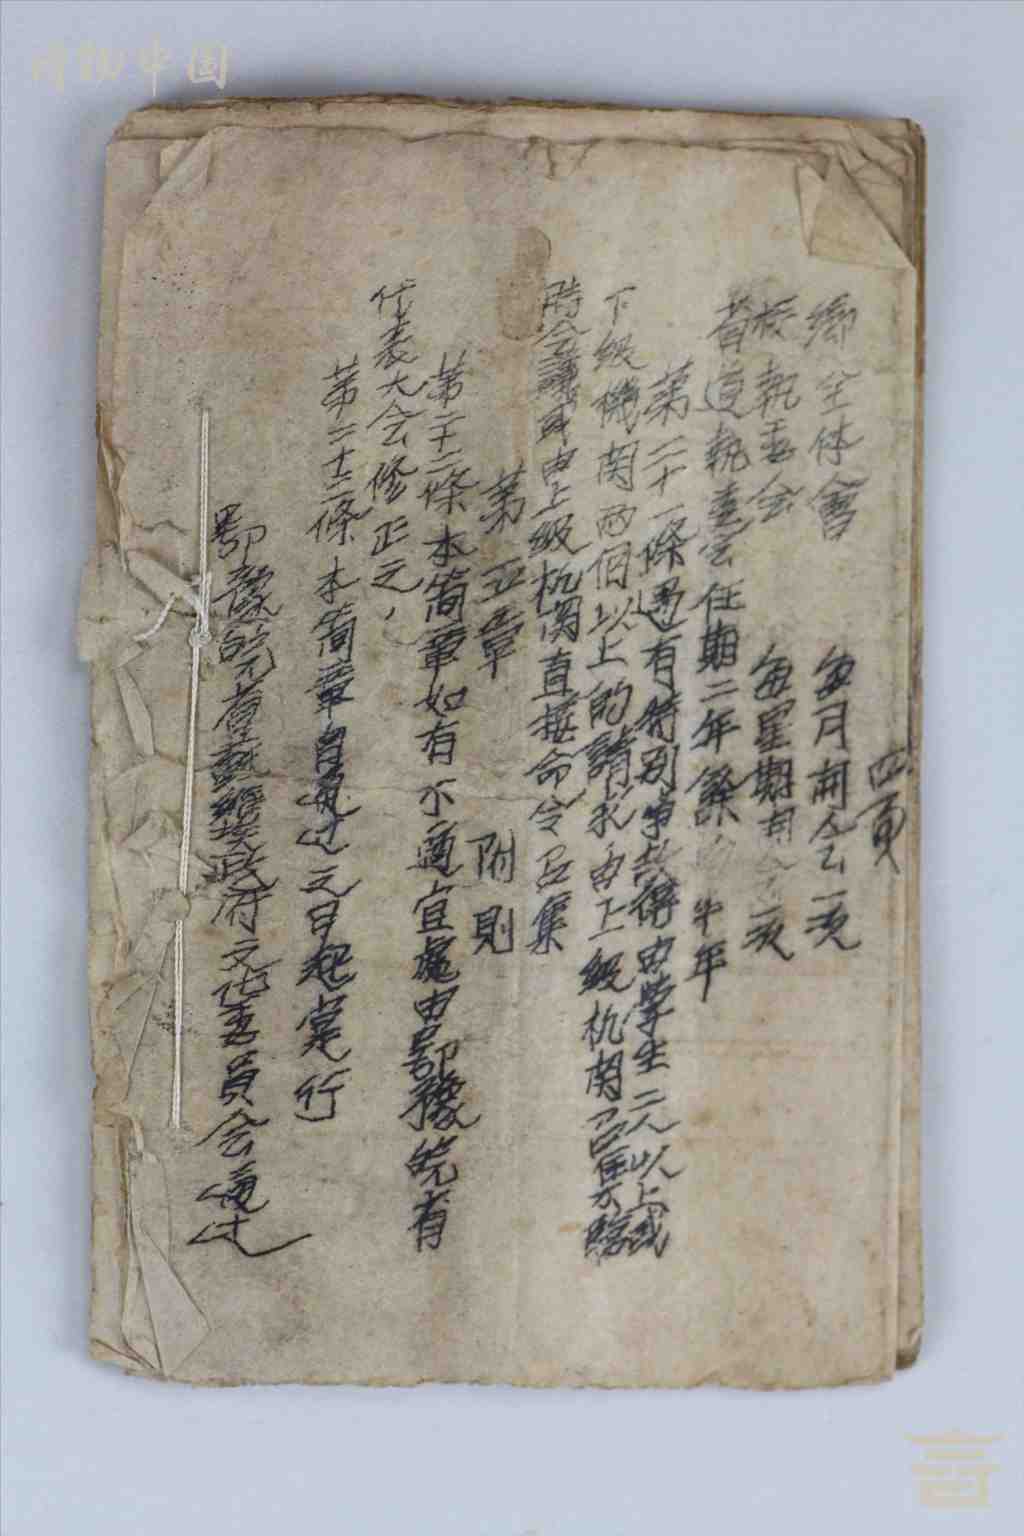 四頁
鄉全体會 每月開会一次
校執委会 每星期開会一次
省道執委会任期二年 餘 半年
第二十一條遇有特别事故得由學生二人以上或
下級機関两個以上的請求由上級机関召集 臨
時会議或由上級机関直接命令召集
第五章 附則
第二十二條本簡章如有不適宜處由鄂豫皖省
代表大会修正之，
第二十三條本簡章自通过之日起實行
鄂豫皖省蘇維埃政府文化委員会通过